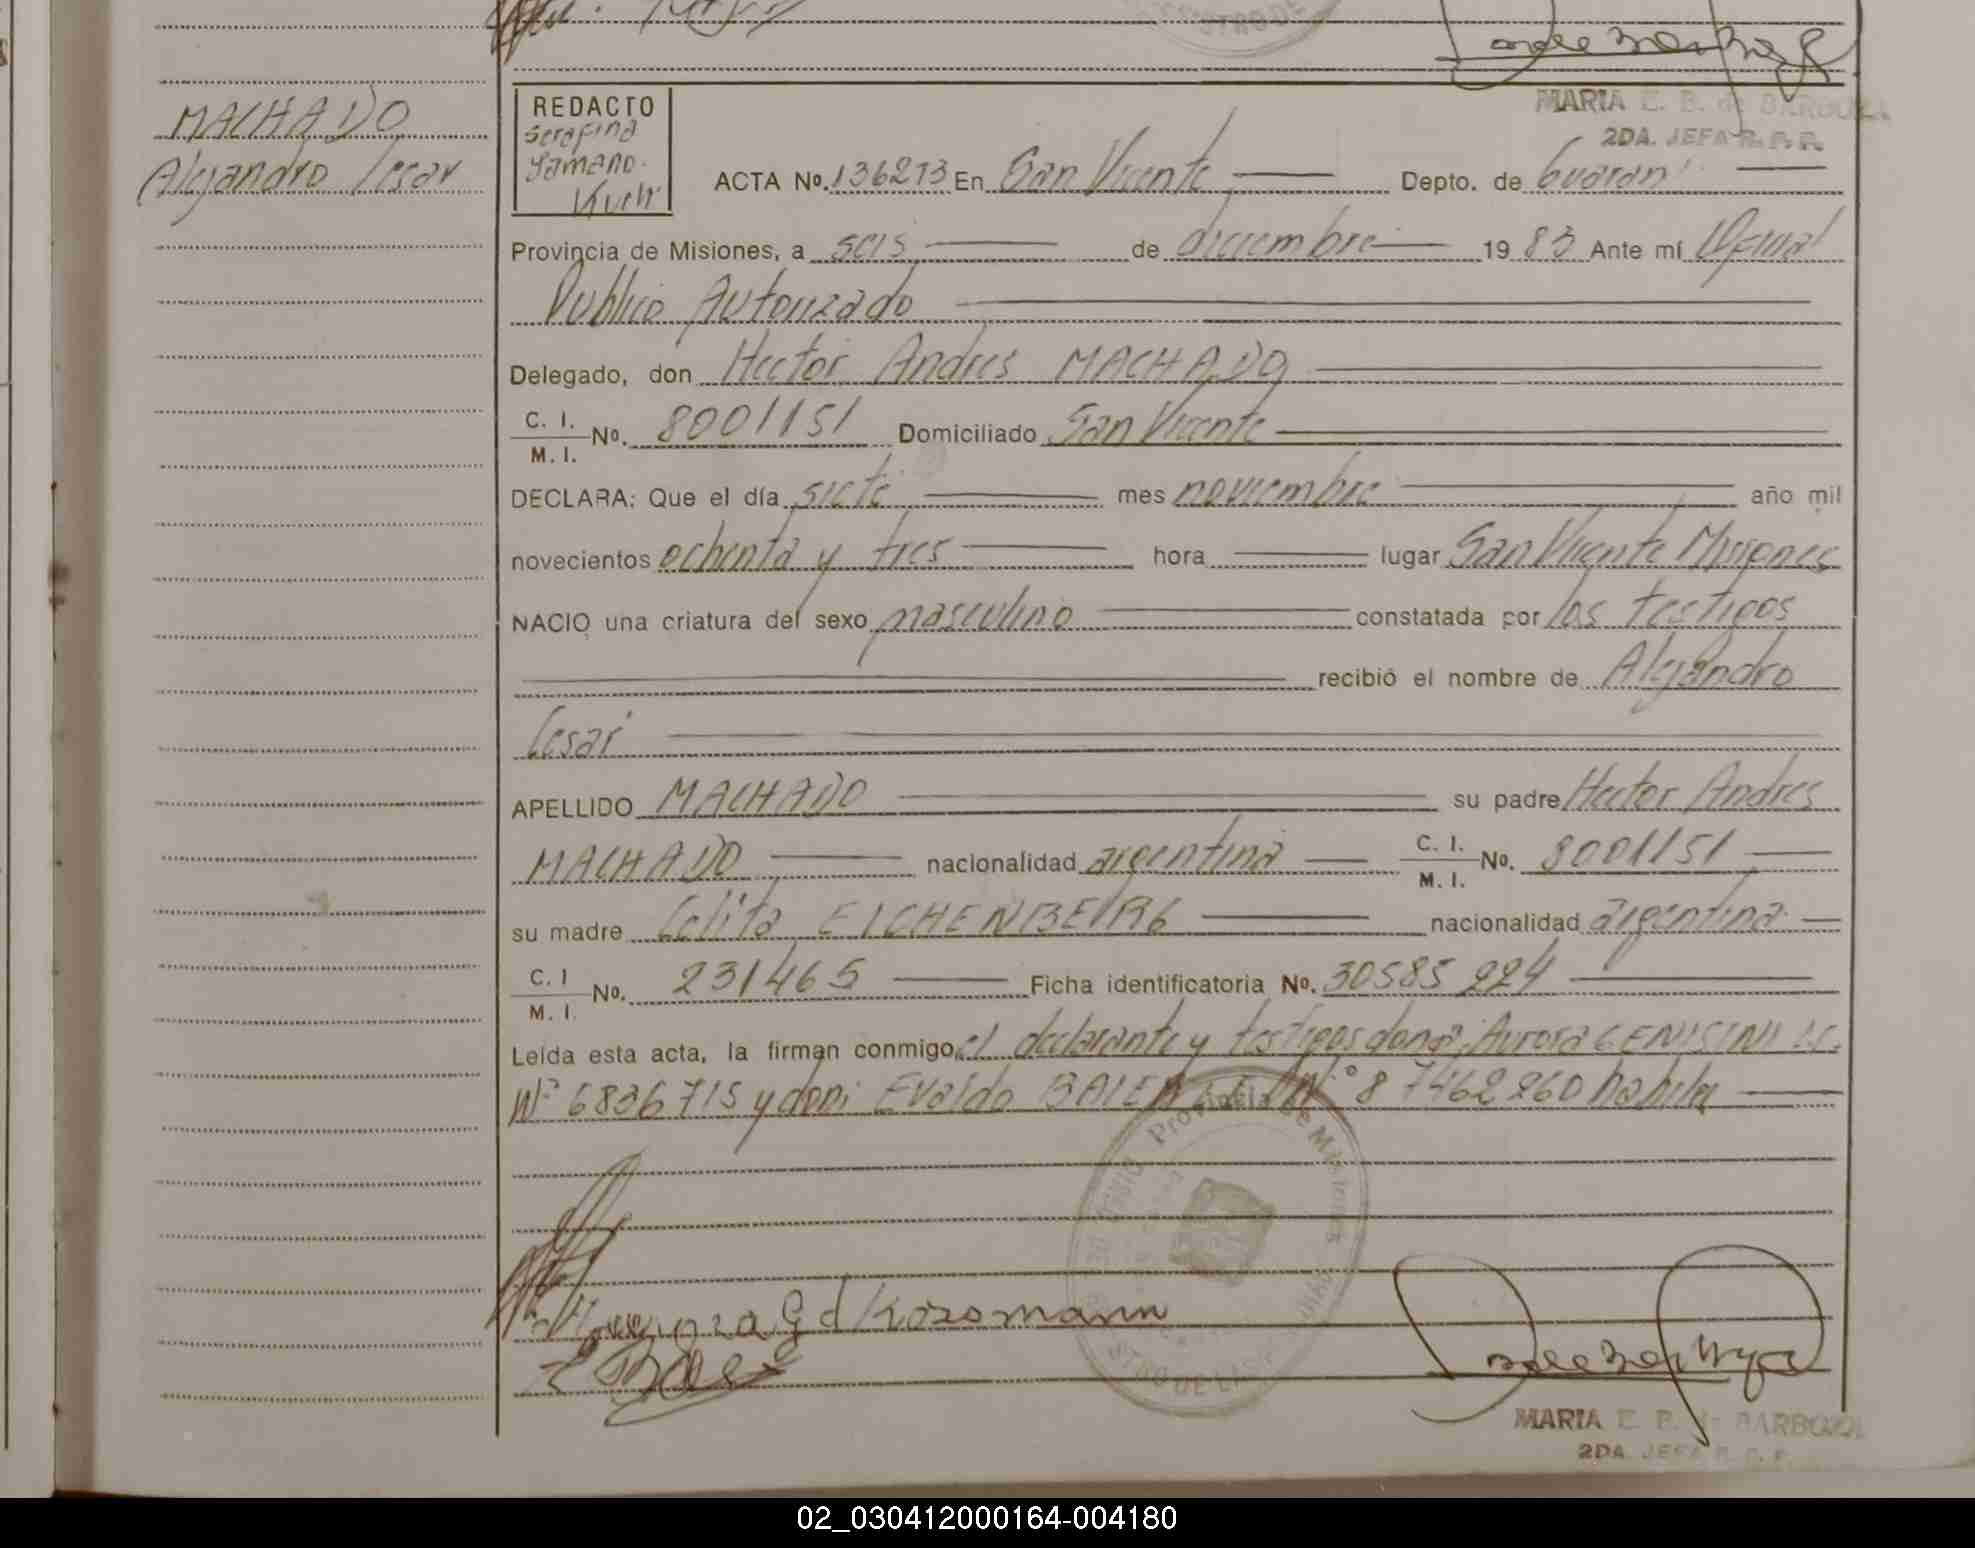 MARIA E. B. de BARBOZA
2DA. JEFA R. P. P.
MACHADO
Alejandro Cesar
REDACTO
Serafina
Yamano
Kuch
ACTA No. 136273 En San Vicente Depto. de Guarani
Provincia de Misiones, a seis de diciembre 19 83 Ante mí Oficial
Publico Autorizado
Delegado, don Hector Andres MACHADO
C. I.
M. I. No. 8001151 Domiciliado San Vicente
DECLARA: Que el día siete mes noviembre año mil
novecientos ochenta y tres hora lugar San Vicente Misiones
NACIO una criatura del sexo masculino constatada por los testigos
recibió el nombre de Alejandro
Cesar
APELLIDO MACHADO su padre Hector Andres
MACHADO nacionalidad argentina C. I.
M. I. No. 8001151
su madre Celita EICHENBEIRG nacionalidad argentina
C. I
M. I. No. 231465 Ficha identificatoria No. 30585224
Leída esta acta, la firman conmigo, el declarante y testigos doña: Aurora GENISINI L.C.
Nº 6836715 y don: Evaldo BAIER Nº 8 7462260 habiles
Provincia de Misiones
MARIA E. B. de BARBOZA
2DA. JEFA R. P. P.
02_030412000164-004180